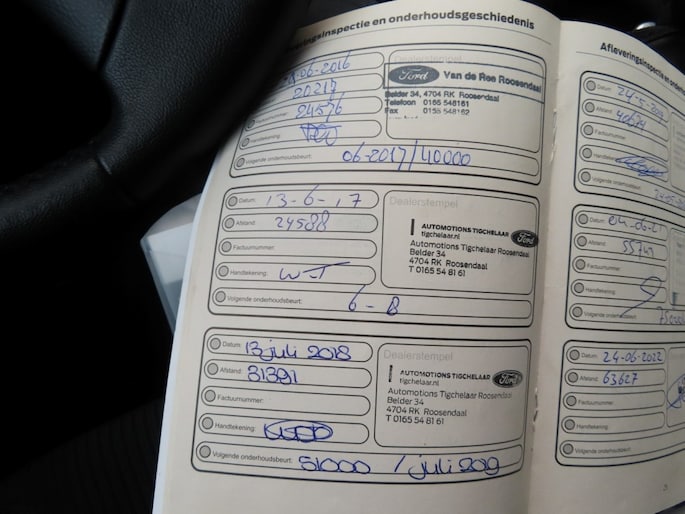 Afleveringsinspectie en onderhoudsgeschiedenis
-06-2016
20217
24576
Volgende onderhoudsbeurt: 06-2017/40000
Dealerstempel
Ford Van de Ree Roosendaal
Belder 34, 4704 RK Roosendaal
Telefoon 0165 548161
Fax 0165 548162
Datum: 13-6-17
Afstand: 24588
Factuurnummer:
Handtekening:
Volgende onderhoudsbeurt: 6-8
Dealerstempel
AUTOMOTIONS TIGCHELAAR Ford
tigchelaar.nl
Automotions Tigchelaar Roosendaal
Belder 34
4704 RK Roosendaal
T 0165 54 81 61
Datum: 13 juli 2018
Afstand: 31391
Factuurnummer:
Handtekening:
Volgende onderhoudsbeurt: 51000 / juli 2019
Dealerstempel
AUTOMOTIONS TIGCHELAAR Ford
tigchelaar.nl
Automotions Tigchelaar Roosendaal
Belder 34
4704 RK Roosendaal
T 0165 54 81 61
Afleveringsinspectie en onderh
Datum: 24-5-
Afstand:
Factuurnummer:
Handteke
Volgende onderhoudsbeurt:
Datum: 04-06-21
Afstand:
Factuurnummer:
Handtekening:
Volgende onderhoudsbeurt:
Datum: 24-06-2022
Afstand: 63627
Factuurnummer:
Handtekening:
Volgende onderhoudsbeurt: